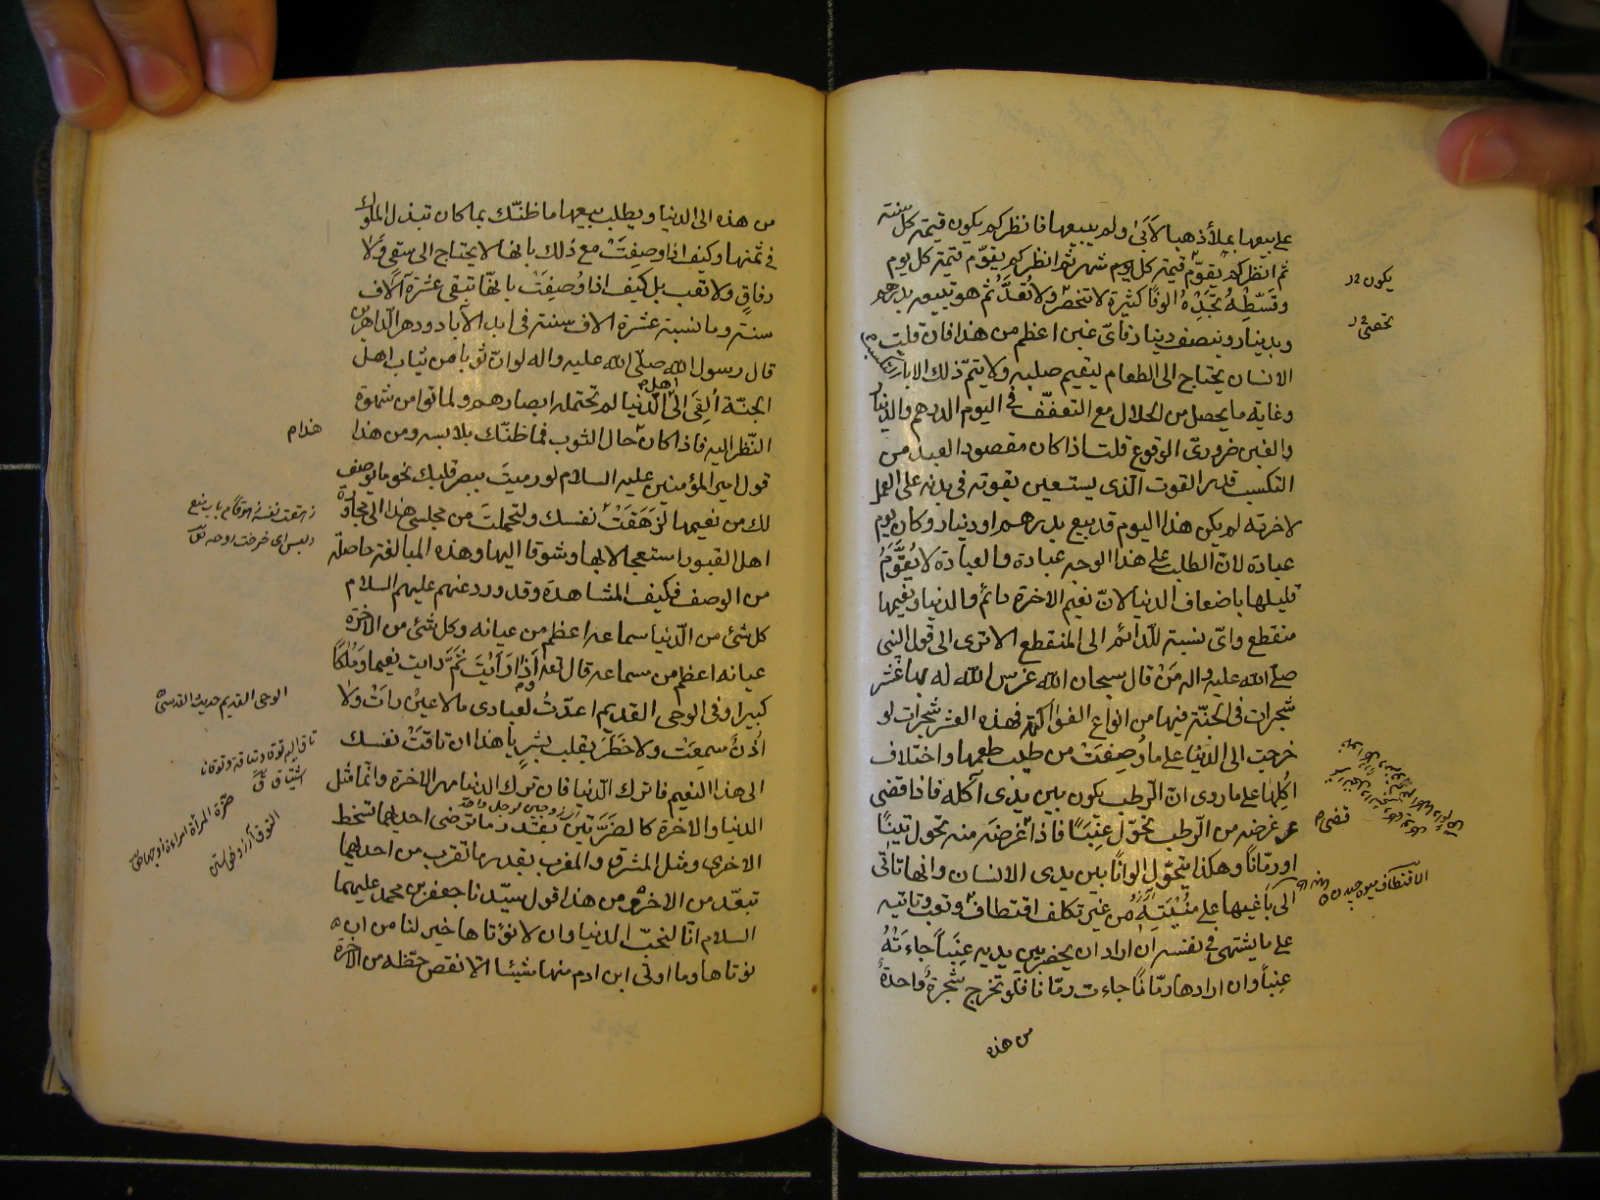 على بيعها بملأ ذهبا لأبى ولم يبيعها فانظر كم يكون قيمة كل سنة
ثم انظر كم يقوّم قيمة كل شهر ثم انظر كم يقوّم قيمة كل يوم
وقسّطه تجده الوفا كثيرة لا تنحصر ولا تعدّ ثم هو تبيعه بدرهم
وبدينار وبنصف دينار فاىّ غبن اعظم من هذا فان قلت
الانسان يحتاج الى الطعام ليقيم صلبه ولا يتمّ ذلك الا بالتكسب
وغاية ما يحصل من الحلال مع التعفّف فى اليوم الدرهم والدينار
والغبن ضرورىّ الوقوع قلت اذا كان مقصود العبد من
التكسب قدر القوت الّذى يستعين بقوته فى بدنه على العمل
لاخرته لم يكن هذا اليوم قد بيع بدرهم او دينار وكان يوم
عبادة لان الطلب على هذا الوجه عبادة والعبادة لا يقوّم
قليلها باضعاف الدنيا لانّ نعيم الاخرة دائم والدنيا ونعيمها
منقطع واىّ نسبة للدائم الى المنقطع الا ترى الى قول النبى
صلى الله عليه واله من قال سبحان الله غرس الله له بها عشر
شجرات فى الجنّة فيها من انواع الفواكه فهذه العشر شجرات لو
خرجت الى الدنيا على ما وُصِفَتْ من طيب طعمها واختلاف
اكلها على ما روى انّ الرّطب يكون بين يدى آكله فاذا قضى
غرضه من الرّطب تحوّل عِنَبًا فاذا غرضه منه تحول تينًا
او رمّانًا وهكذا يتحوّل الوانًا بين يدى الانسان وانها تاتى
الى باغيها على منيته من غير تكلف اقتطاف وتعب وتاتيه
على ما يشتهى فى نفسه ان اراد ان يحضر بين يديه عِنَبًا جاءته
عنبًا وان ارادها رمّانًا جاءت رمّانا فلو تخرج شجرةٌ واحدةٌ
من هذه
يكون
تحصى
قضى
الاقتطاف ميوه چيدن
من هذه الى الدنيا ويطلب بيعها ما ظنّك بما كان تبذل الملوك
فى ثمنها وكيف اذا وصِفَتْ مع ذلك بانها لا يحتاج الى سقى ولا
رفاقٍ ولا تعب بل كيف اذا وُصِفَتْ بانهّا تبقى عشرة آلاف
سنة وما نسبة عشرة الاف سنة فى ابد الآباد ودهر الدّاهرين
قال رسول الله صلّى الله عليه واله لو انّ ثوبا من ثياب اهل
الجنّة أُلقِىَ الى اهل الدّنيا لم تحتمله ابصارهم ولماتوا من شهوة
النّظر اليه فاذا كان حال الثوب فما ظنّك بلابسه ومن هذا
قول امير المؤمنين عليه السلام لو رميتَ ببصر قلبك نحو ما يوصف
لك من نعيمها لزَهَقَتْ نفسك ولتحملتَ من مجلسى هذا الى مجاورة
اهل القبور استعجالا بها وشوقا اليها وهذه المبالغة حاصلة
من الوصف فكيف المشاهدة وقد ورد عنهم عليهم السلام
كل شئ من الّدنيا سماعه اعظم من عيانه وكل شئ من الاخرة
عيانه اعظم من سماعه قال تعه اِذَا رَاَيْتَ ثَمَّ رايت نعيما وَمُلْكًا
كبيرا وفى الوحى القديم اعدّتُ لعبادى ما لا عينٌ رات ولا
اُذُنٌ سمِعَتْ ولا خَطَرَ بقلب بشرٍ يا هذا ان تاقتْ نفسك
الى هذا النعيم فاترك الّدنيا فان ترك الدنيا مهر الاخرة وانّما مثل
الدنيا والاخرة كالضرّتين بقدر ما ترضى احديهما تسخط
الاخرى ومثل المشرق والمغرب بقدر ما تقرب من احديهما
تبعّد من الاخرى ومن هذا قول سيّدنا جعفر بن محمد عليهما
السلام انّا لنحبّ الدنيا وان لا نؤتاها خير لنا من ان
نؤتاها وما اوتى ابن ادم منها شيئا الّا نقص حظّه من الاخرة
هذا م
زهقت نفسه زهوقا من باب منع
اى خرجت روحه ق
الوحى القديم حديث القدسى
تاق اليه توقا وتياقة وتوقانا
اشتاق ق
ضرّة المرأة امراءة زوجها ص
التوق آرزومند شدن